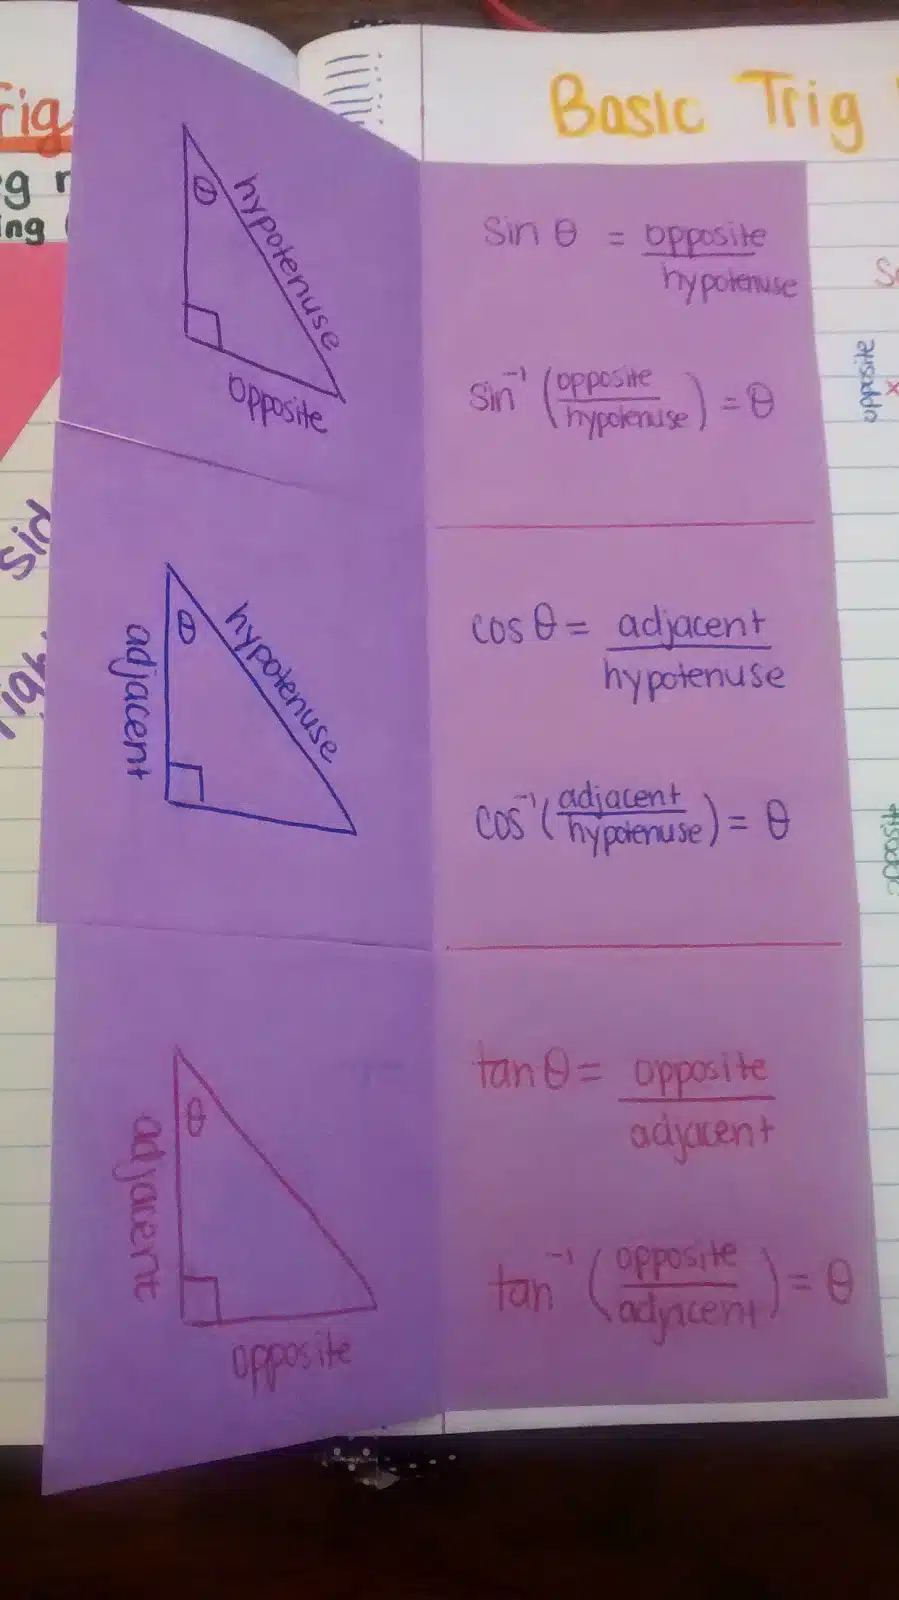 Basic Trig
θ
hypotenuse
opposite
sin θ = opposite
hypotenuse
sin⁻¹ (opposite
hypotenuse) = θ
θ
hypotenuse
adjacent
cos θ = adjacent
hypotenuse
cos⁻¹ (adjacent
hypotenuse) = θ
θ
adjacent
opposite
tan θ = opposite
adjacent
tan⁻¹ (opposite
adjacent) = θ
opposite